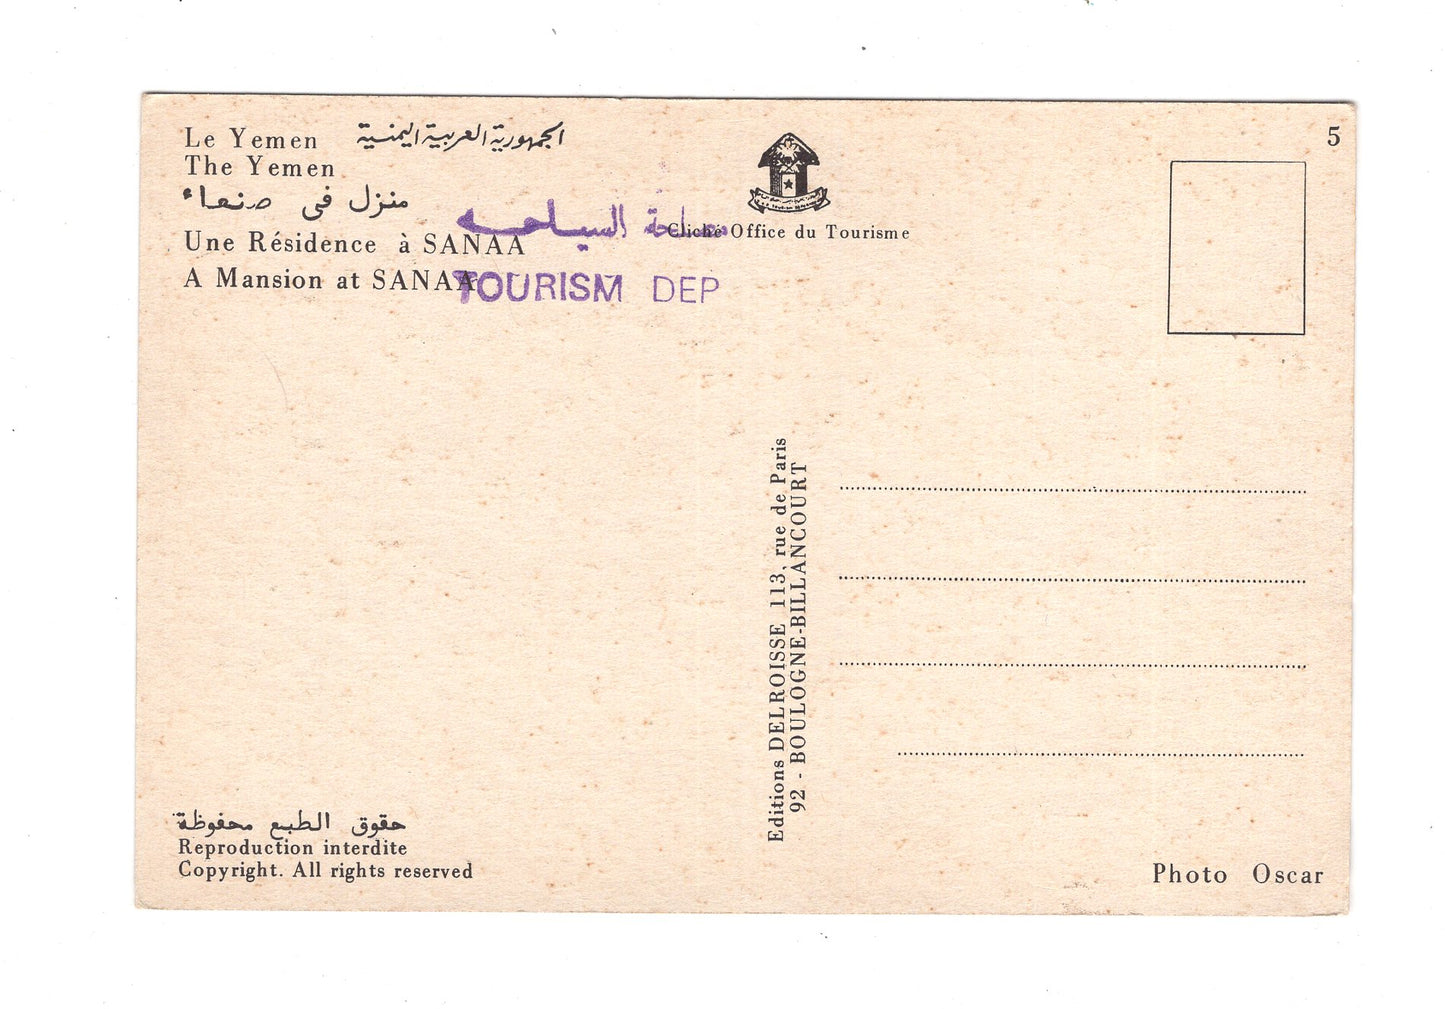 Le Yemen الجمهورية العربية اليمنية
The Yemen
منزل في صنعاء
Une Résidence à SANAA
A Mansion at SANAA
مصلحة السياحه
TOURISM DEP
Cliché Office du Tourisme
5
Editions DELROISSE 113, rue de Paris
92 - BOULOGNE-BILLANCOURT
حقوق الطبع محفوظة
Reproduction interdite
Copyright. All rights reserved
Photo Oscar